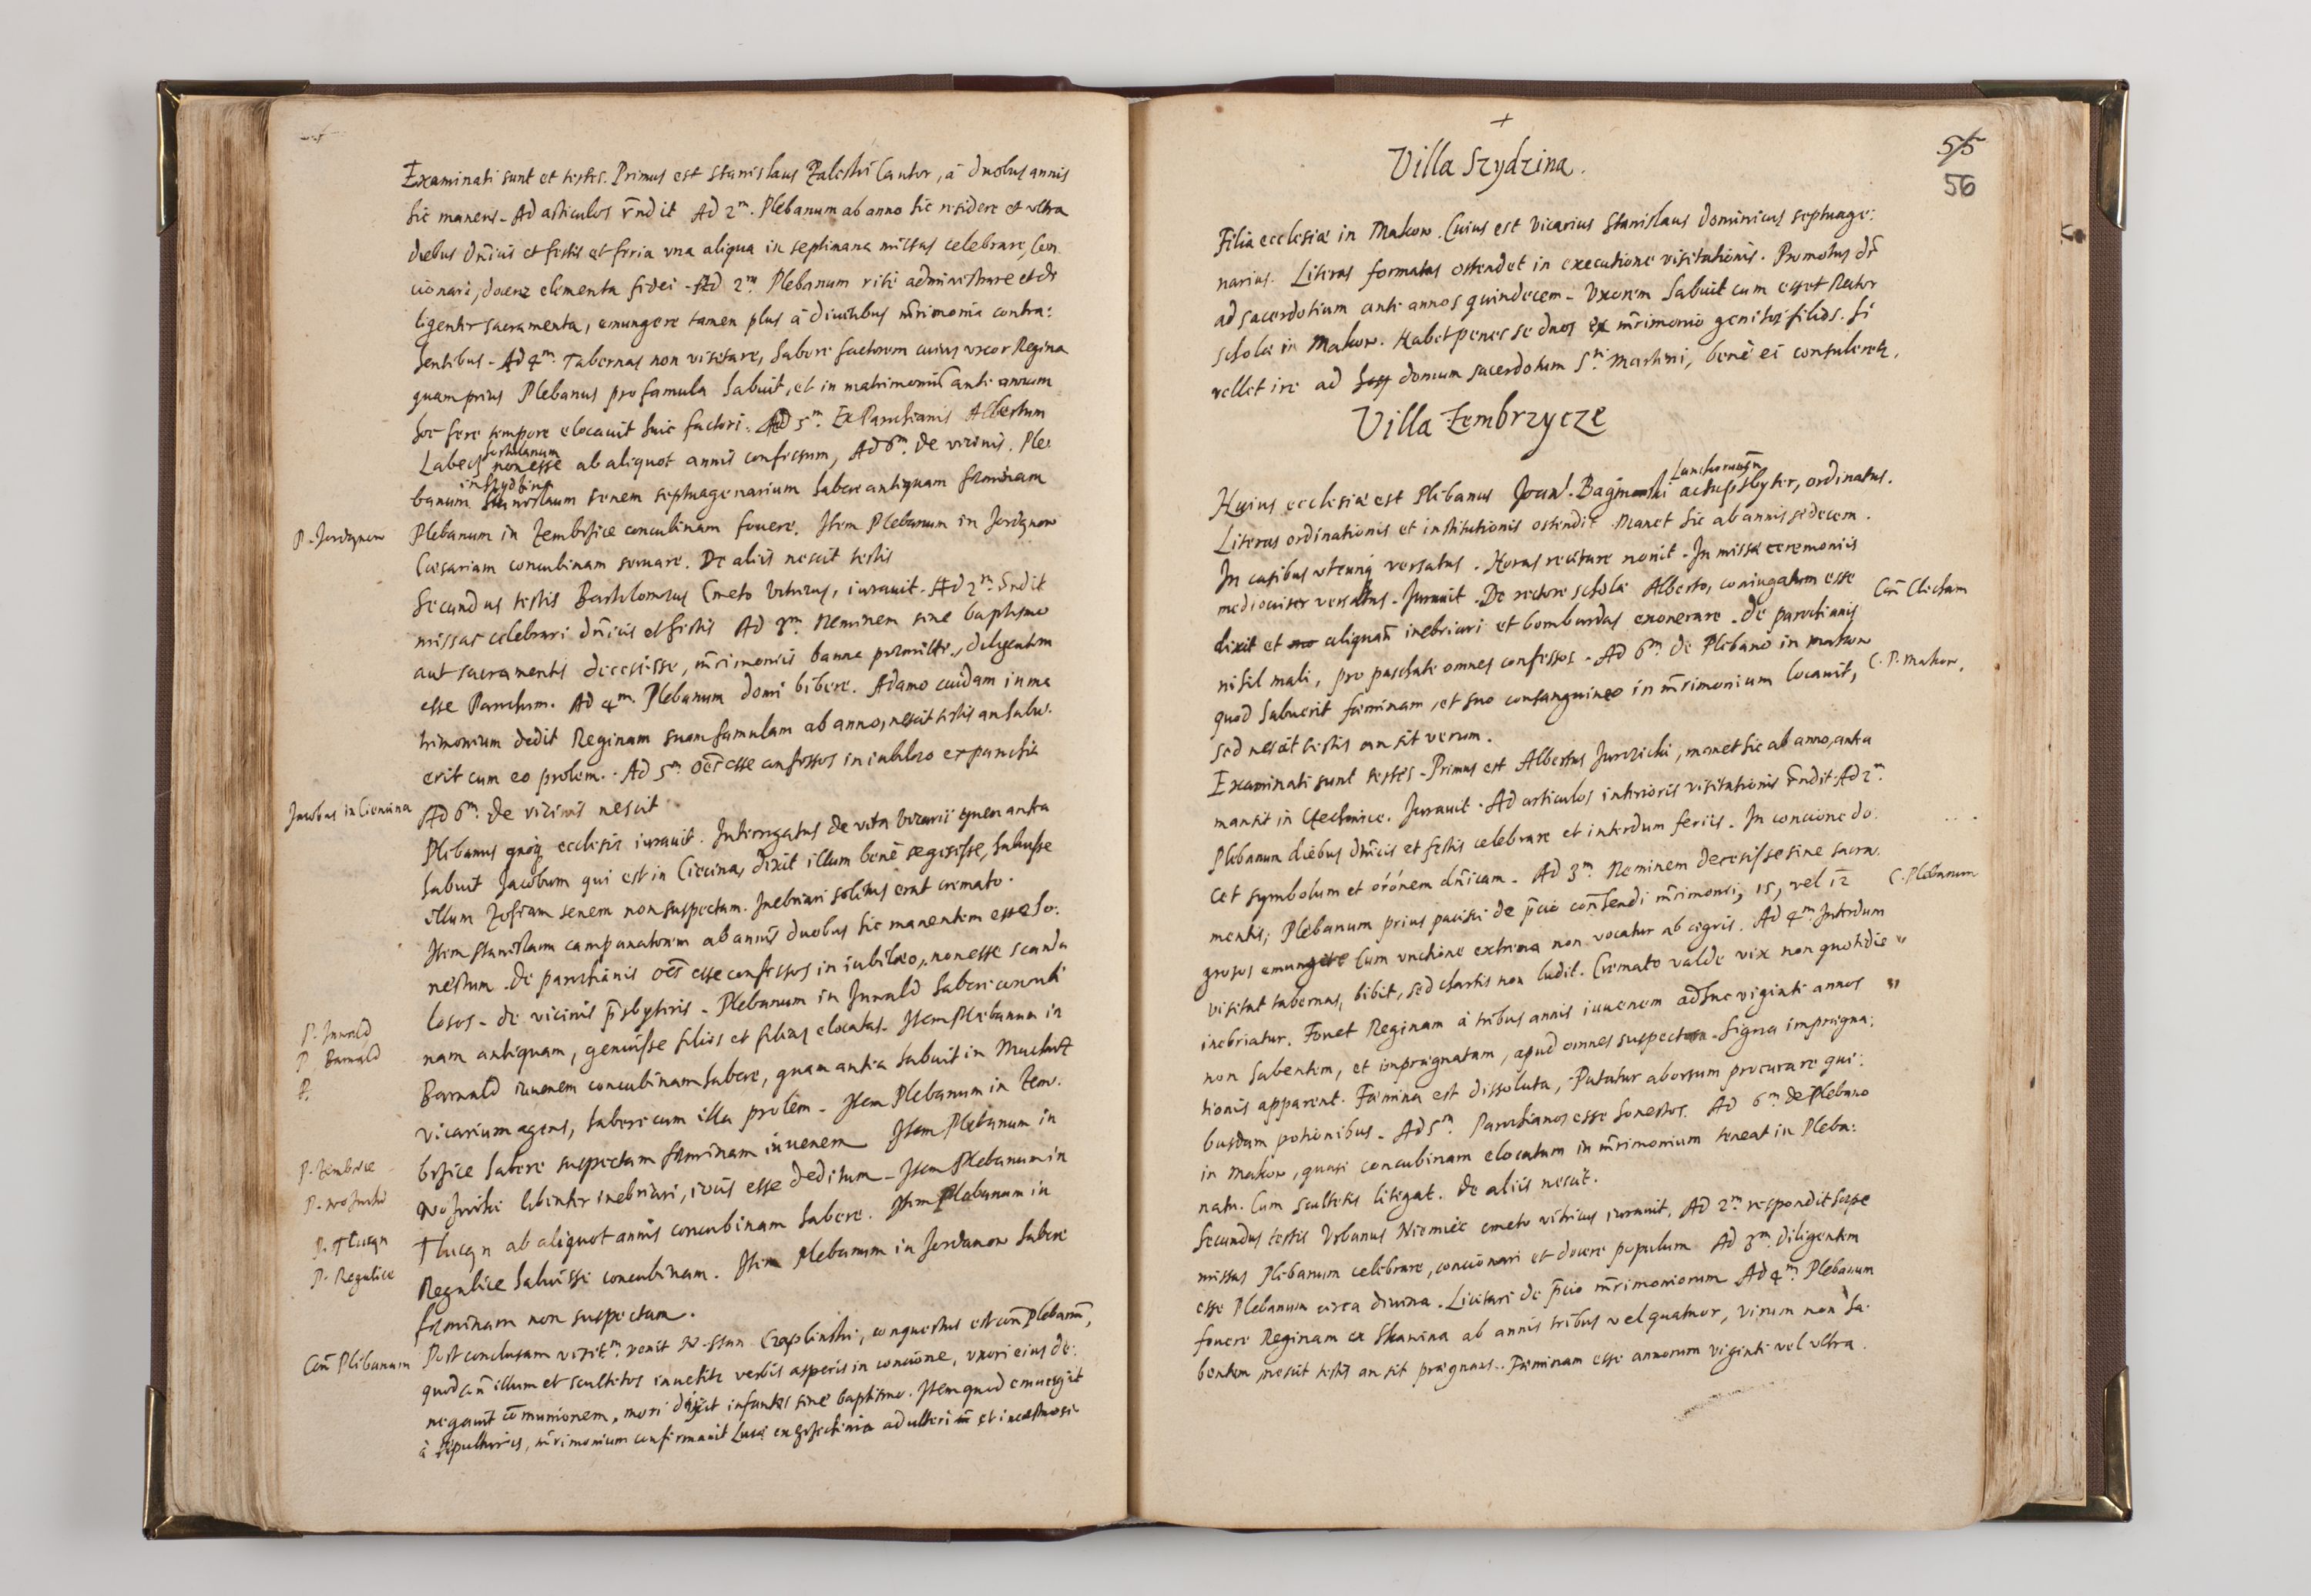 Examinati sunt et testes. Primus est Stanislaus Zaleski Cantor, à duobus annis
hic manens. Ad articulos rñdit Ad 2m. Plebanum ab anno hic residere et ultra
diebus dñicis et festis et feria una aliqua in septimana missas celebrare, Con
cionari, docere elementa fidei. Ad 2m. Plebanum ritè administrare et di
ligenter sacramenta, emungere tamen plus à divitibus mrimonia contra:
hentibus. Ad 4m. Tabernas non visitare, habere factorem cuius uxor Regina
quam prius Plebanus pro famula habuit, et in matrimoniũ ante annum
hoc fere tempore elocavit huic factori. Ad 5m. Ex Parochianis Albertum
Labecz non esse ab aliquot annis confessum, Ad 6m. de vicinis. Ple
banum senem septuagenarium habere antiquam foeminam
P. Jordanow Plebanum in Zembrzice concubinam fovere. Item Plebanum in Jordanow
Caesariam concubinam servare. De aliis nescit testis
Secundus testis Bartolomeus Cmeto iuravit. Ad 2m.
missas celebrari dñicis et festis Ad 3m. Neminem sine baptismo
aut sacramentis decessisse, mrimonii banna, diligentem
esse Parochum. Ad 4m. Plebanum domi bibere. Adamo cuidam in ma
trimonium dedit Reginam suam famulam ab anno, nescit testis an habu
erit cum eo prolem. Ad 5m. oẽs esse confessos in iubilaeo ex parochia
Jacobus in Ciencina Ad 6m. de vicinis nescit
Plebanus quoq ecclesiae iuravit. Interrogatus de vita vicarii quem antea
habuit Jacobum qui est in Ciecina, dixit illum benè se gessisse, habuisse
illum Zofiam senem non suspectam. Inebriari solitus erat cremato.
Item Stanislaum campanatorem ab annis duobus hic manentem esse ho:
nestum. De parochianis oẽs esse confessos in iubilaeo, non esse scanda
losos. de vicinis psbyteris. Plebanum in Inwald habere concubi
P. Inwald
P. Barwald nam antiquam, genuisse filios et filias elocatas. Item Plebanum in
P. Barwald iuvenem concubinam habere, quam antea habuit in
vicarium agens, habere cum illa prolem. Item Plebanum in Zem:
P. Zembrice brzice habere suspectam foeminam iuvenem Item Plebanum in
P. Woznik Wozniki libenter inebriari, iocis esse deditum. Item Plebanum in
P. Tlucan Tlucan ab aliquot annis concubinam habere. Item Plebanum in
P. Regulice Regulice habuisse concubinam. Item Plebanum in Jordanow habere
foeminam non suspectam.
Con Plebanum Post conclusam visit. venit Czaplinski, conquestus est con Plebanũ,
quod con illum et scultetos invehitur verbis asperis in concione, uxori eius de:
negavit cõmunionem, mori dixit infantes sine baptismo. Item quod emungit
à sepulturis, mrimonium confirmavit adulteri et incestuosi
+
55
56
Villa Szydzina.
Filia ecclesiae in Makow. Cuius est Vicarius Stanislaus Dominicus septuage:
narius. Literas formatas ostendet in executione visitationis. Promotus
ad sacerdotium ante annos quindecem. Uxorem habuit cum esset Rector
scholae in Makow. Habet penes se duos ex mrimonio genitos filios. Si
vellet ire ad domum sacerdotum Sti Martini, benè ei consuleretur.
Villa Zembrzycze
Huius ecclesiae est Plebanus Joan. ordinatus.
Literas ordinationis et institutionis ostendit. Manet hic ab annis sedecem.
In casibus utcunq versatus. Horas recitare novit. In missae ceremoniis
mediocriter versatus. Iuravit. De rectore scholae Alberto, coniugatum esse
dixit et aliquañ inebriari et bombardas exonerare. de parochianis
nihil mali, pro paschate omnes confessos. Ad 6m. de Plebano in Makow C. P. Makow.
quod habuerit foeminam, et suo consanguineo in mrimonium locavit,
sed nescit testis an sit verum.
Examinati sunt testes. Primus est Albertus Jurczicki, manet hic ab anno, antea
mansit in. Iuravit. Ad articulos interioris visitationis rñdit Ad 2m.
Plebanum diebus dñicis et festis celebrare et interdum feriis. In concione do
cet symbolum et orõnem dñicam. Ad 3m. Neminem decessisse sine sacra:
mentis; Plebanum prius pacisci de pcio mrimonii, 15, vel 12 C. Plebanum
grosos emungere Cum unctione extrema non vocatur ab aegris. Ad 4m Interdum
visitat tabernas, bibit, sed chartis non ludit. Cremato valde vix non quotidie "
inebriatur. Fovet Reginam à tribus annis iuvenem adhuc viginti annos "
non habentem, et impraegnatam, apud omnes suspectam. Signa impraegna:
tionis apparent. Foemina est dissoluta, Putatur abortum procurare qui:
busdam potionibus. Ad 5m. Parochianos esse honestos. Ad 6m. de Plebano
in Makow, quasi concubinam elocatam in mrimonium teneat in Pleba:
natu. Cum scultetis litigat. De aliis nescit.
Secundus testis Urbanus Niemiec cmeto vitricus iuravit. Ad 2m respondit saepe
missas Plebanum celebrare, concionari et docere populum Ad 3m. diligentem
esse Plebanum circa divina. Licitari de pcio mrimoniorum Ad 4m. Plebanum
fovere Reginam ex Skawina ab annis tribus vel quatuor, virum non ha:
bentem, nescit testis an sit praegnans. Foeminam esse annorum viginti vel ultra.